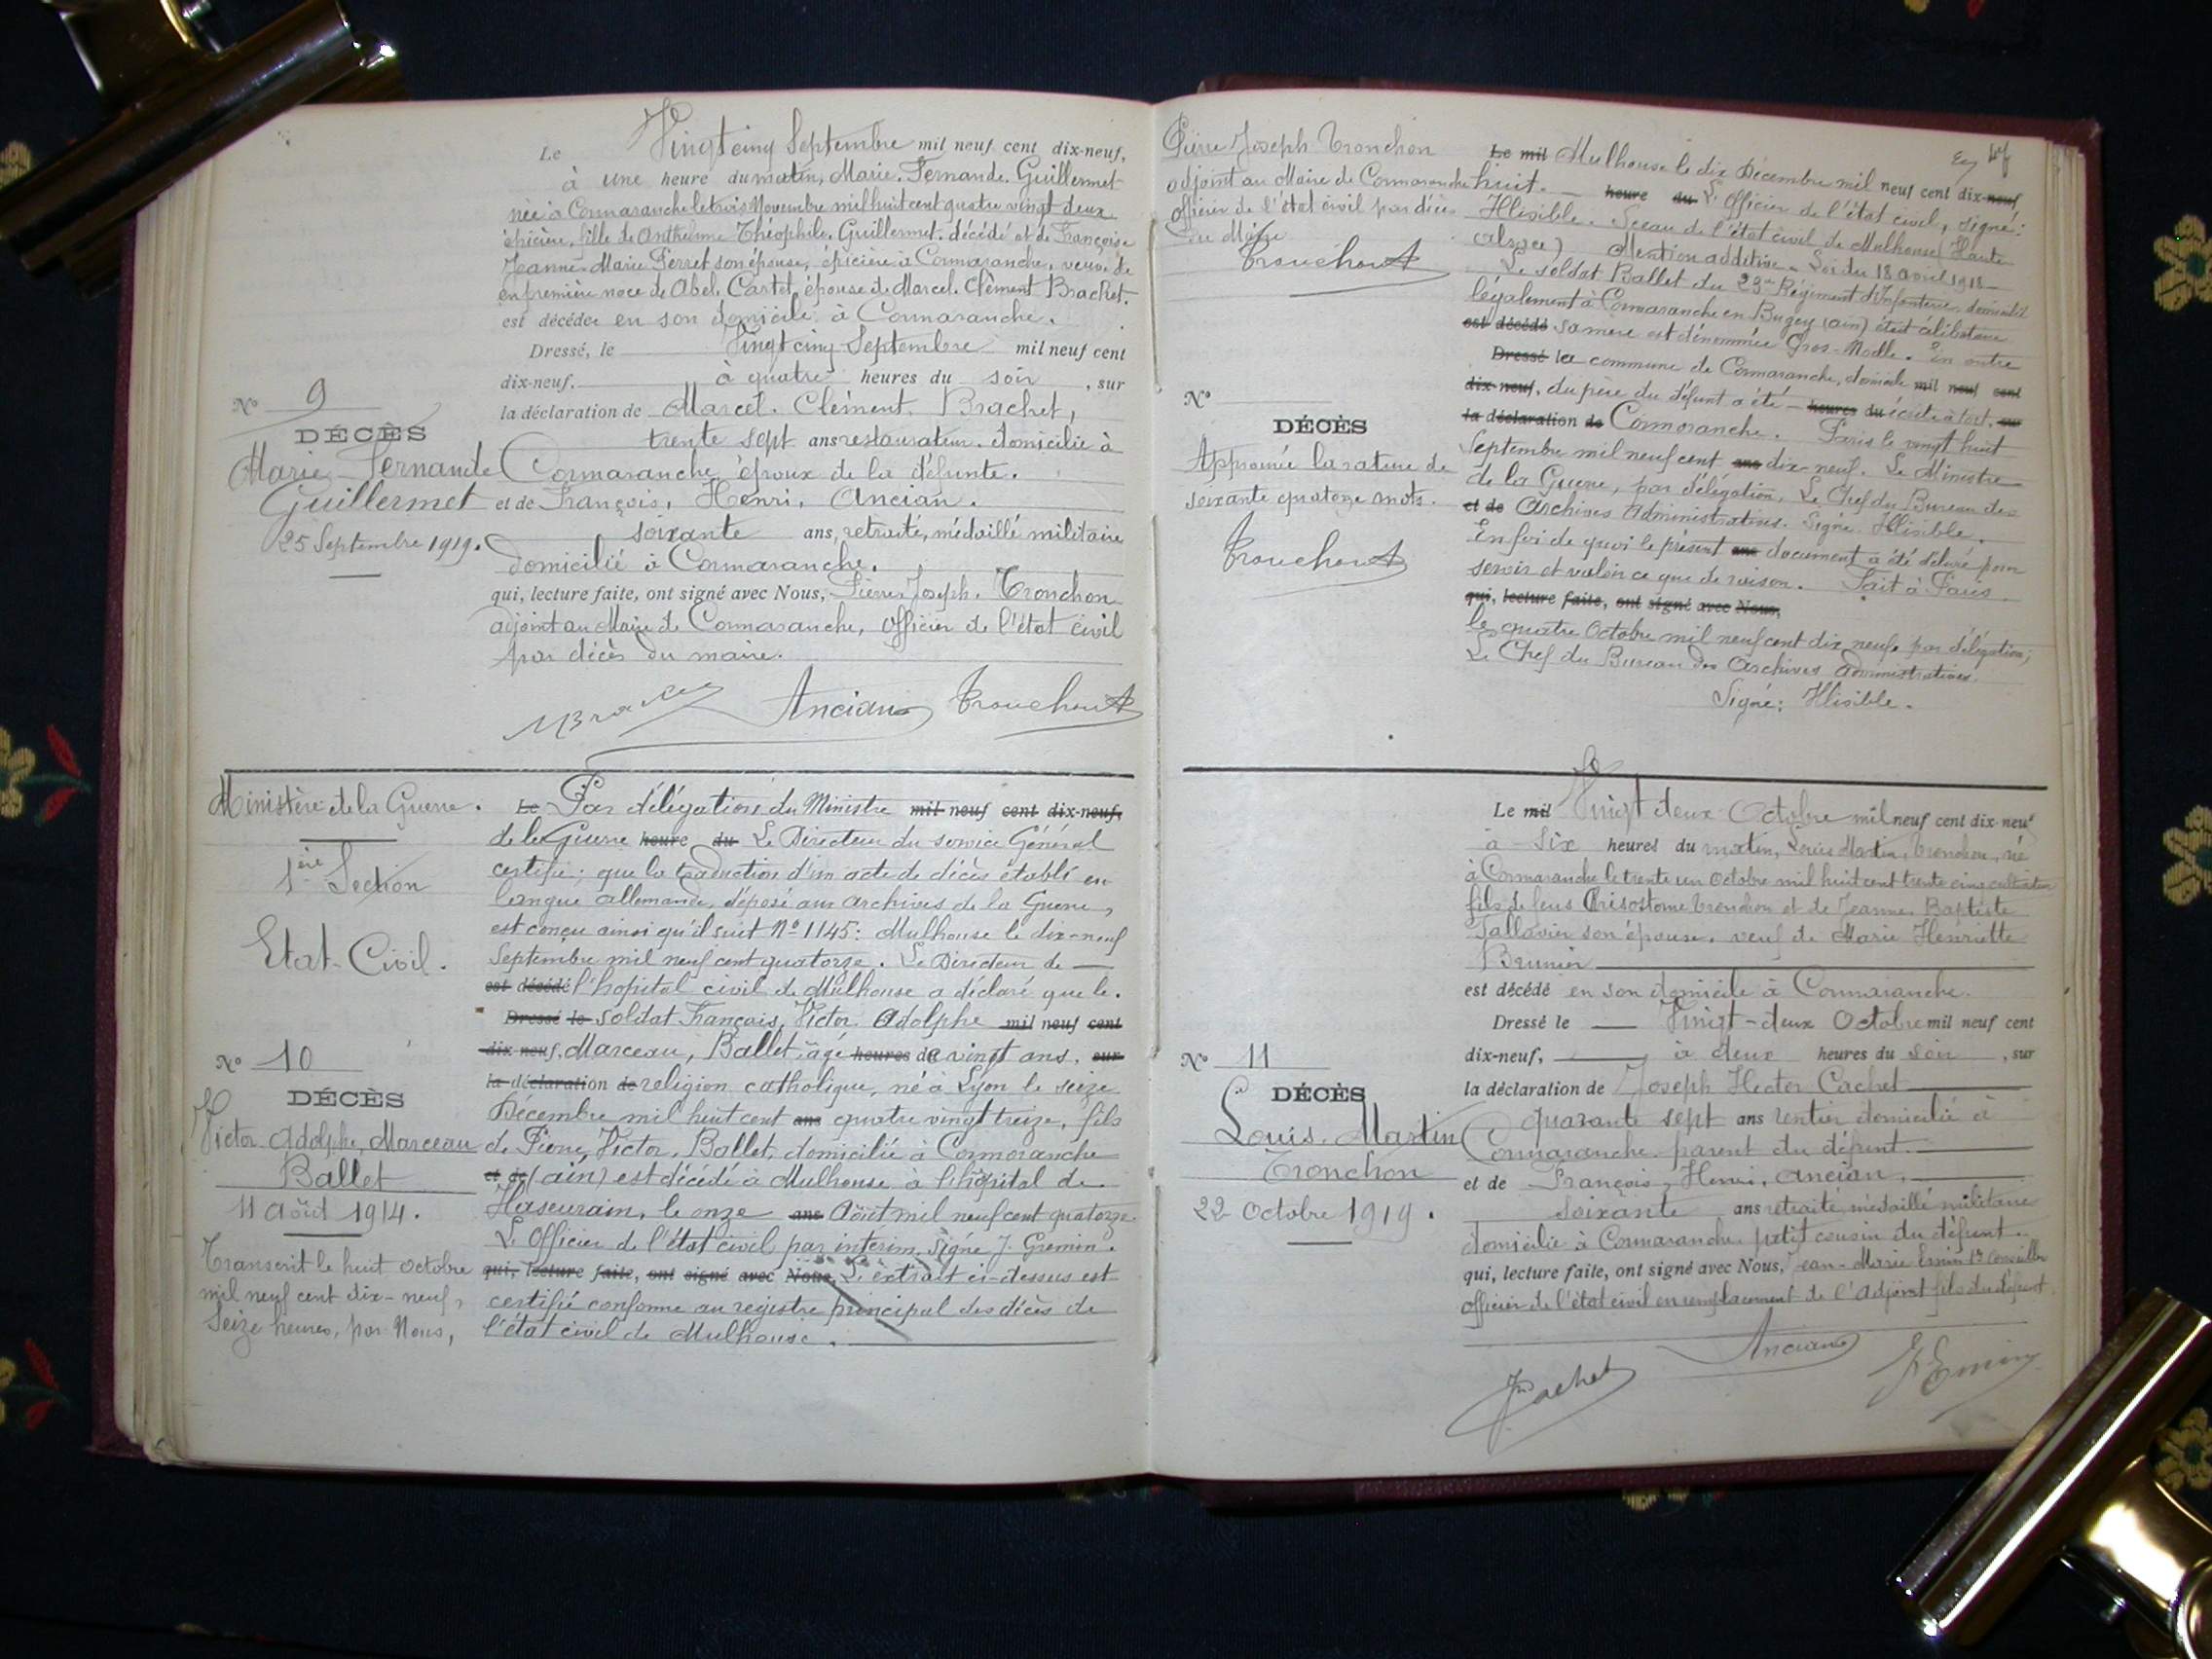 Le Vingt cinq Septembre mil neuf cent dix-neuf,
à une heure du matin, Marie. Fernande. Guillermet
née à Cormaranche le trois Novembre mil huit cent quatre vingt deux
épicière, fille de Anthelme Théophile. Guillermet. décédé et de Françoise
Jeanne-Marie Perret son épouse, épicière à Cormaranche, veuve de
en première noce de Abel. Cartet, épouse de Marcel. Clément Brachet.
est décédée en son domicile à Cormaranche.
Dressé, le Vingt cinq Septembre mil neuf cent
dix-neuf. à quatre heures du soir , sur
la déclaration de Marcel. Clément. Brachet,
trente sept ans restaurateur. domicilié à
Cormaranche époux de la défunte.
et de François, Henri, Ancian.
soixante ans, retraité, médaillé militaire
domicilié à Cormaranche.
qui, lecture faite, ont signé avec Nous, Pierre Joseph. Tronchon
adjoint au Maire de Cormaranche, officier de l'état civil
par décès du maire.
MBrachet Ancian Tronchon
N° 9
DÉCÈS
Marie-Fernande
Guillermet
25 Septembre 1919.
Ministère de la Guerre.
1ère Section
Etat-Civil.
N° 10
DÉCÈS
Victor Adolphe, Marceau
Ballet
11 août 1914.
Transcrit le huit octobre
mil neuf cent dix-neuf,
Seize heures, par Nous,
Le Par délégation du Ministre mil neuf cent dix-neuf,
de la Guerre heure du Le Directeur du service Général
certifie; que la traduction d'un acte de décès établi en
langue allemande, déposé aux archives de la Guerre,
est conçu ainsi qu'il suit N° 1145: Mulhouse le dix-neuf
Septembre mil neuf cent quatorze. Le Directeur de
est décédé l'hopital civil de Mulhouse a déclaré que le.
Dressé le soldat Français, Victor Adolphe mil neuf cent
dix neuf, Marceau, Ballet, âgé heures de vingt ans, sur
la déclaration de religion catholique, né à Lyon le seize
Décembre mil huit cent ans quatre vingt treize, fils
de Pierre, Victor, Ballet, domicilié à Cormoranche
et de (ain) est décédé à Mulhouse à l'hôpital de
Hasenrain, le onze ans Août mil neuf cent quatorze.
L'Officier de l'état civil par interim. Signé J. Gremin.
qui, lecture faite, ont signé avec Nous, L'extrait ci-dessus est
certifié conforme au registre principal des décès de
l'état civil de Mulhouse.
Pierre Joseph Tronchon
adjoint au Maire de Cormaranche
officier de l'état civil par décès
du Maire
Tronchon
N°
DÉCÈS
Approuvé la rature de
soixante quatorze mots.
Tronchon
Le mil Mulhouse le dix Décembre mil neuf cent dix-neuf
huit. heure du L'Officier de l'état civil, signé:
Illisible. Sceau de l'état civil de Mulhouse (Haute
Alsace) Mention additive. Loi du 18 avril 1918
Le soldat Ballet du 23me Régiment d'Infanterie domicilié
légalement à Cormaranche en Bugey (ain) était célibataire
est décédé sa mère est dénommée Gros-Nodle. En outre
Dressé le la commune de Cormaranche, domicile mil neuf cent
dix-neuf, du père du défunt a été heures du écrite à tort, sur
la déclaration de Cormoranche. Paris le vingt huit
Septembre mil neuf cent ans dix-neuf. Le Ministre
de la Guerre, par délégation, Le Chef du Bureau des
et de Archives Administratives. Signé Illisible.
En foi de quoi le présent ans document a été délivré pour
servir et valoir ce que de raison. Fait à Paris
qui, lecture faite, ont signé avec Nous,
le quatre Octobre mil neuf cent dix neuf, par délégation;
Le Chef du Bureau des Archives Administratives.
Signé: Illisible.
N° 11
DÉCÈS
Louis. Martin
Tronchon
22 Octobre 1919.
Le mil Vingt deux Octobre mil neuf cent dix-neuf
à Six heures du matin, Louis Martin, Tronchon, né
à Cormaranche le trente un Octobre mil huit cent trente cinq cultivateur
fils de feus Chrisostome Tronchon et de Jeanne Baptiste
Tallavin son épouse. veuf de Marie Henriette
Brunier
est décédé en son domicile à Cormaranche.
Dressé le Vingt-deux Octobre mil neuf cent
dix-neuf, à deux heures du soir , sur
la déclaration de Joseph Hector Cachet
quarante sept ans rentier domicilié à
Cormaranche parent du défunt.
et de François, Henri, Ancian,
soixante ans retraité, médaillé militaire
domicilié à Cormaranche petit cousin du défunt.
qui, lecture faite, ont signé avec Nous, Jean-Marie Emin 1er Conseiller
officier de l'état civil en remplacement de l'Adjoint fils du défunt.
JCachet Ancian JEmin